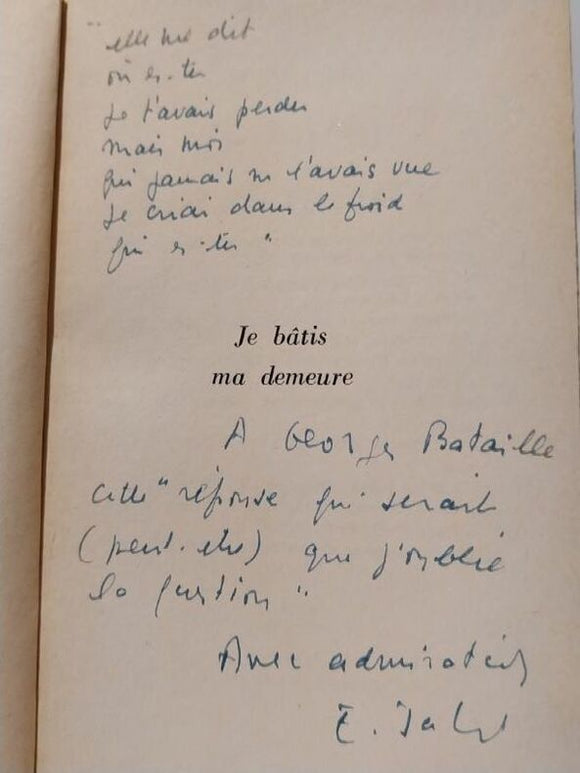 "elle me dit
où es-tu
Je t'avais perdu
mais moi
qui jamais ne l'avais vue
Je criai dans le froid
qui es-tu"
Je bâtis
ma demeure
A Georges Bataille
cette "réponse qui serait
(peut-etre) que j'oublie
la question"
Avec admiration
E. Jabès